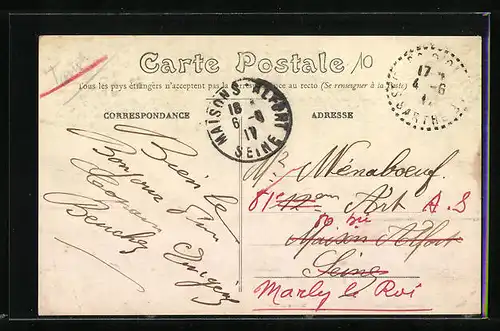 Carte Postale
10
Tous les pays étrangers n'acceptent pas la correspondance au recto (Se renseigner à la Poste)
CORRESPONDANCE
ADRESSE
MAISONS-ALFORT
6 - 6
17
SEINE
17
4 - 6
SARTHE
Bien le
Bonjour d'un
Copain
Mr Ménaboeuf
81e 12em Art A.S
Maison Alfort
Seine
Marly le Roi